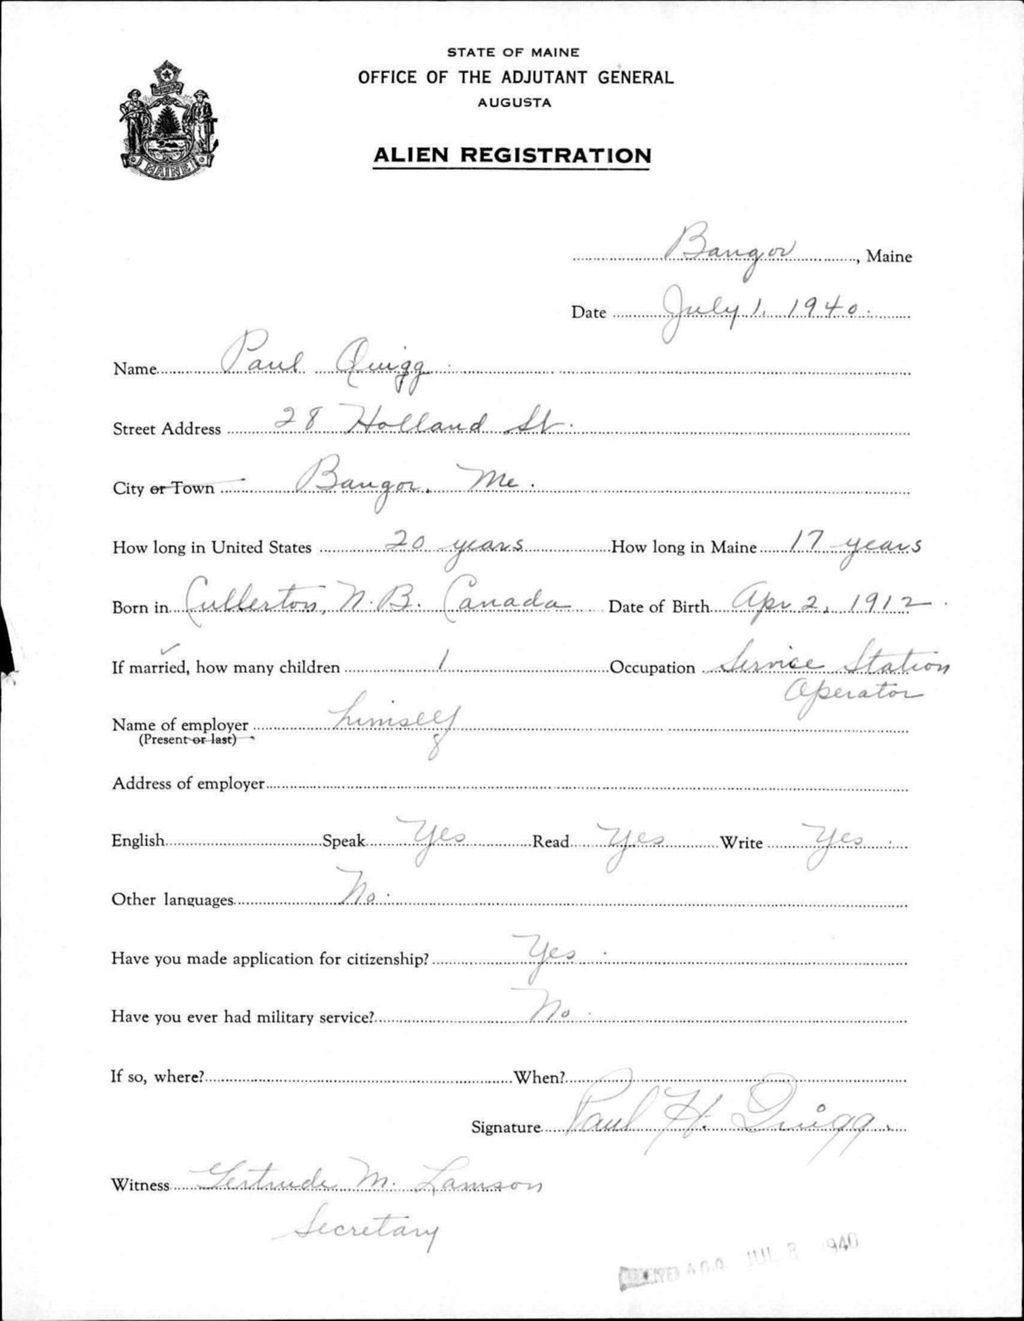 STATE OF MAINE
OFFICE OF THE ADJUTANT GENERAL
AUGUSTA
ALIEN REGISTRATION
MAINE
Bangor, Maine
Date July 1, 1940.
Name Paul Quigg
Street Address 28 Holland St.
City or Town Bangor, Me.
How long in United States 20 years How long in Maine 17 years
Born in Cullerton, N.B. Canada Date of Birth Apr 2, 1912
If married, how many children 1 Occupation Service Station
Operator
Name of employer himself
(Present or last)
Address of employer
English Speak Yes Read Yes Write Yes
Other languages No.
Have you made application for citizenship? Yes
Have you ever had military service? No
If so, where? When?
Signature Paul H. Quigg.
Witness Gertrude M. Lamson
Secretary
A.G.O. JUL 8 1940